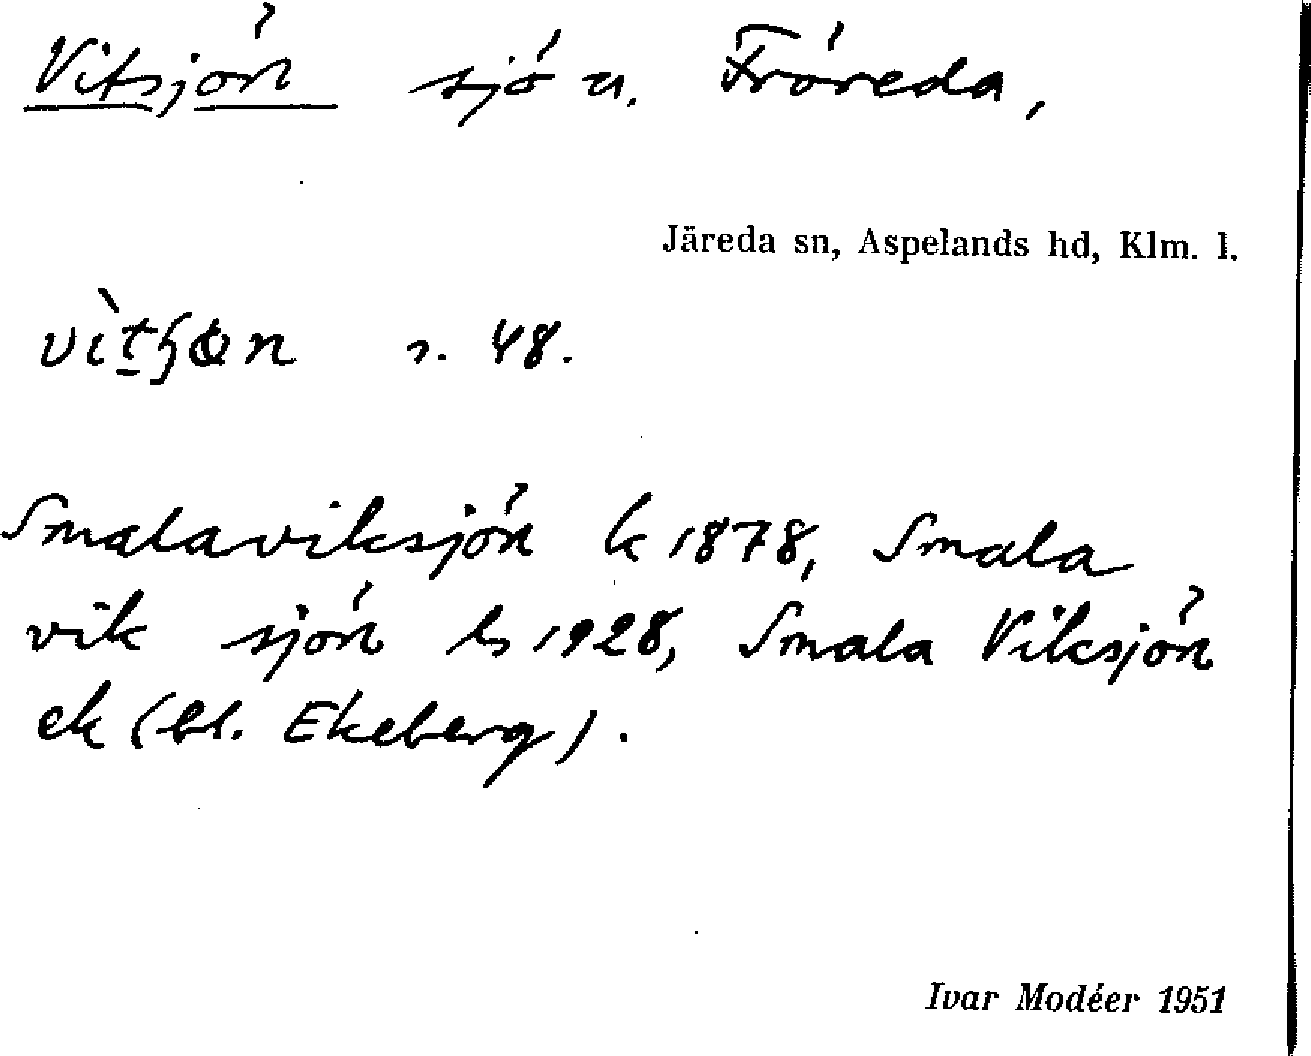 Vitsjön sjö u. Fröreda,
Järeda sn, Aspelands hd, Klm. l.
s. 48.
Smalaviksjön k 1878, Smala
vik sjön ls 1928, Smala Viksjön
ek (bl. Ekeberg).
Ivar Modéer 1951